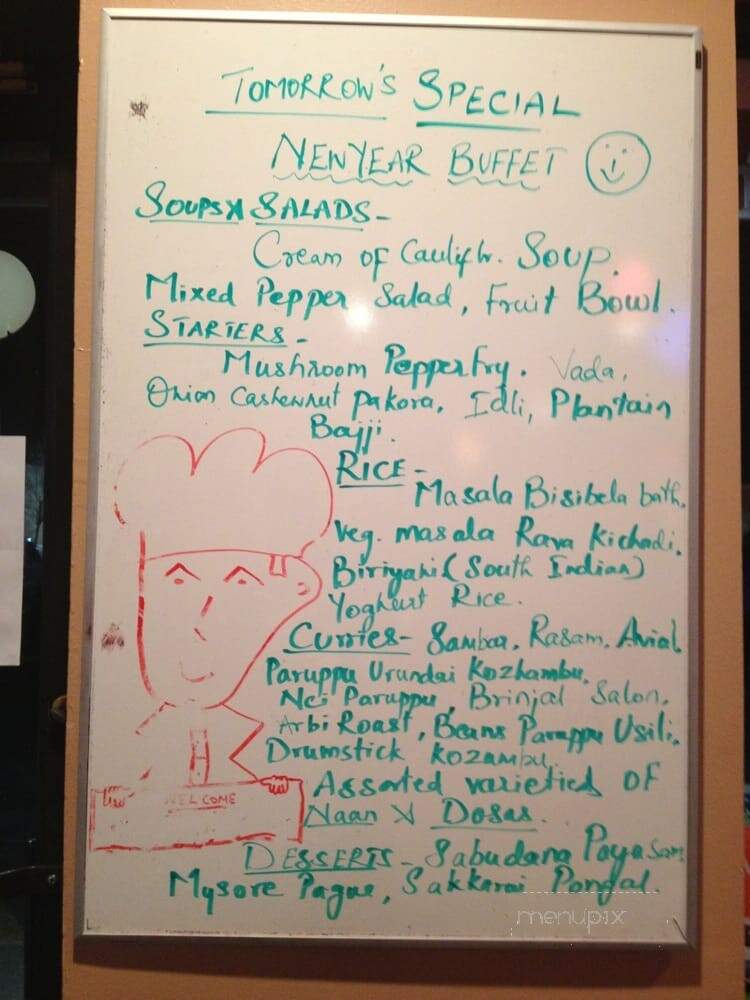 TOMORROW'S SPECIAL
NEW YEAR BUFFET
SOUPS & SALADS -
Cream of Caulifr. Soup.
Mixed Pepper Salad, Fruit Bowl.
STARTERS -
Mushroom Pepperfry. Vada,
Onion Cashewnut pakora, Idli, Plantain
Bajji.
RICE -
Masala Bisibela bath.
Veg. masala Rava Kichadi.
Biriyani (South Indian)
Yoghurt Rice.
Curries - Sambar, Rasam, Avial
Paruppu Urundai Kozhambu,
Nei Paruppu, Brinjal Salon,
Arbi Roast, Beans Paruppu Usili.
Drumstick Kozambu,
Assorted varieties OF
Naan & Dosas.
WELCOME
DESSERTS - Sabudana Payasam
Mysore Pague, Sakkarai Pongal.
menupix